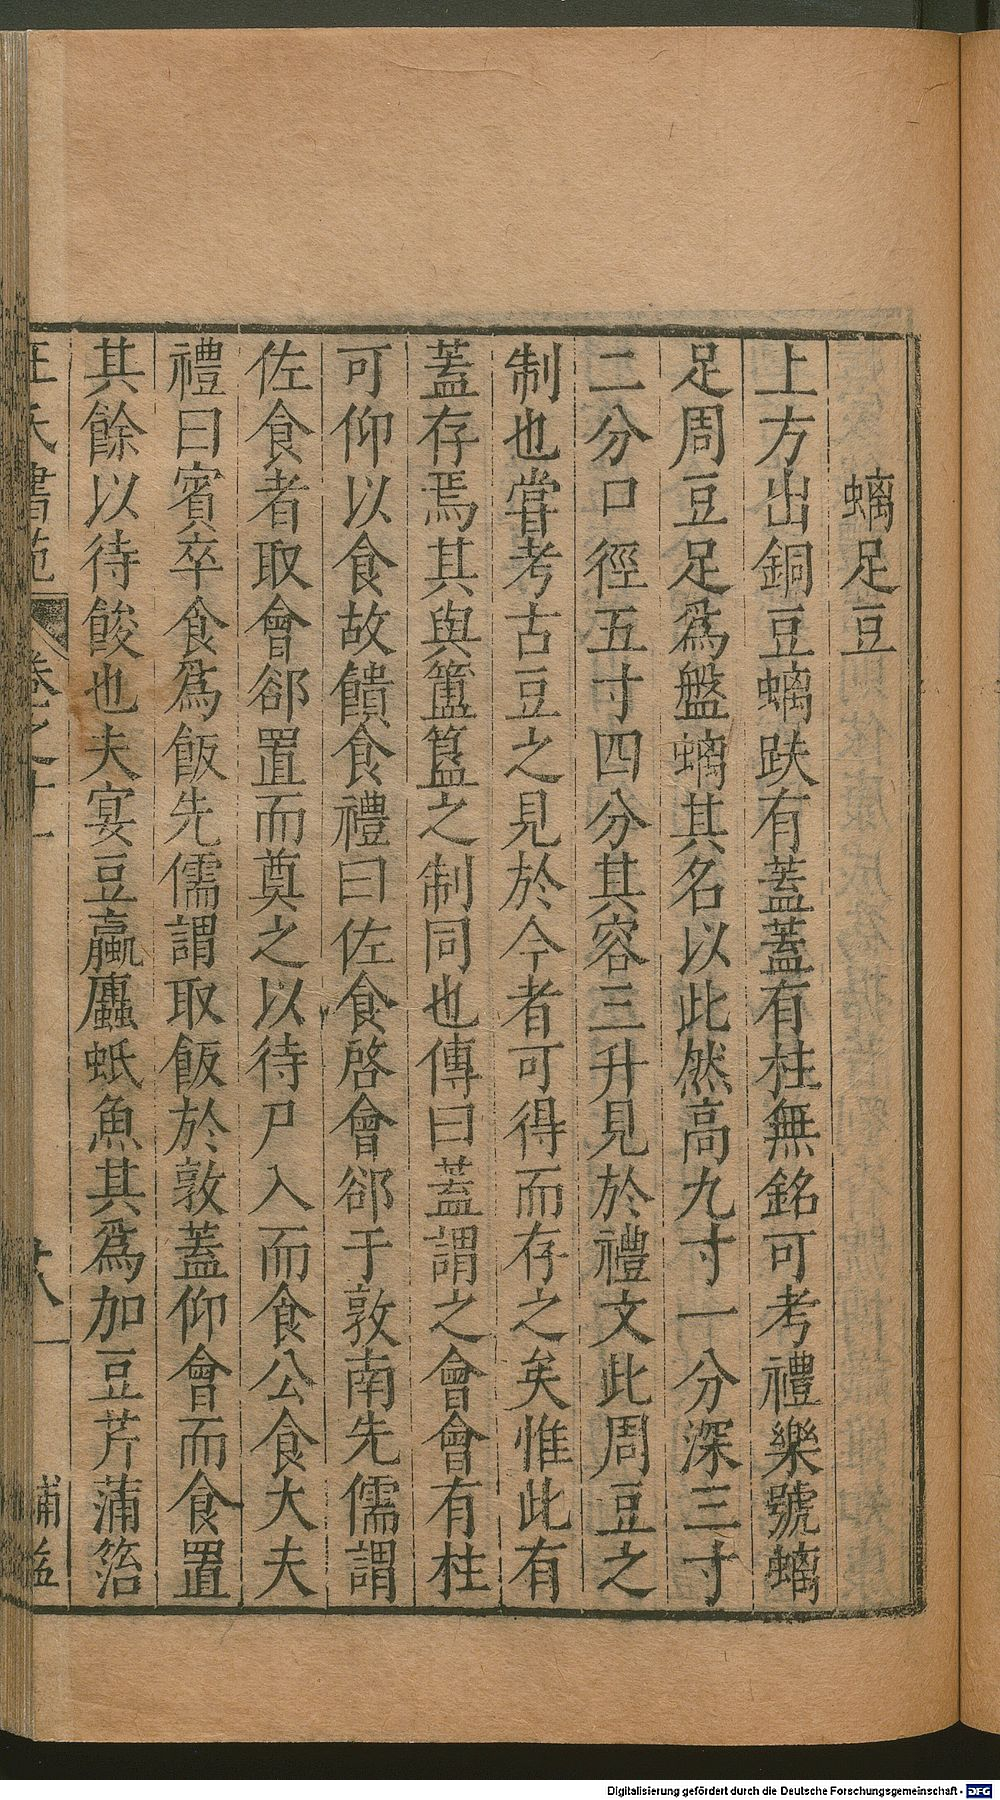 螭足豆
上方出銅豆螭趺有蓋蓋有柱無銘可考禮樂號螭
足周豆足爲盤螭其名以此然高九寸一分深三寸
二分口徑五寸四分其容三升見於禮文此周豆之
制也嘗考古豆之見於今者可得而存之矣惟此有
蓋存焉其與簠簋之制同也傳曰蓋謂之會會有柱
可仰以食故饋食禮曰佐食啓會郤于敦南先儒謂
佐食者取會郤置而奠之以待尸入而食公食大夫
禮曰賓卒食爲飯先儒謂取飯於敦蓋仰會而食置
其餘以待餕也夫宴豆蠃蠯蚳魚其爲加豆芹蒲箈
氏書苑 卷之十一 廿八
Digitalisierung gefördert durch die Deutsche Forschungsgemeinschaft - DFG